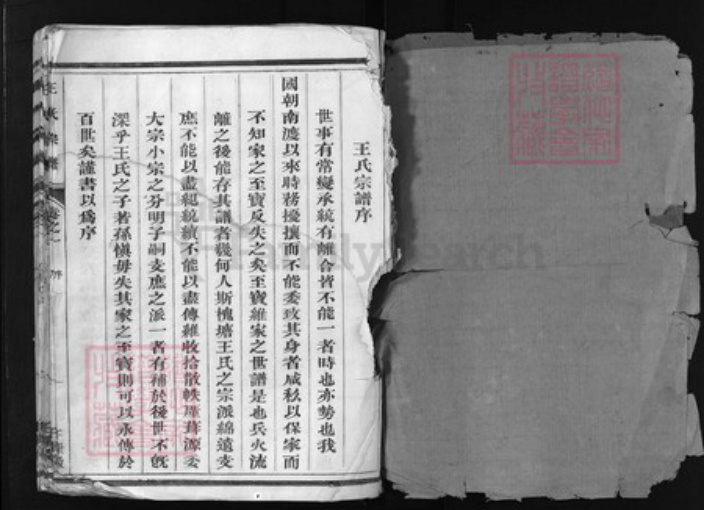 王氏宗譜序
世事有常變承統有離合皆不能一者時也亦勢也我
國朝南渡以來時務擾攘而不能委致其身者咸私以保家而
不知家之至寶反失之矣至寶維家之世譜是也兵火流
離之後能存其譜者幾何人斯槐塘王氏之宗派綿遠支
庶不能以盡紀統緒不能以盡傳維收拾散帙 源委
大宗小宗之分明子嗣支庶之派一者有補於後世不旣
深乎王氏之子若孫慎毋失其家之至寶則可以永傳於
百世矣謹書以爲序
王氏宗譜
卷之一 序
FamilySearch